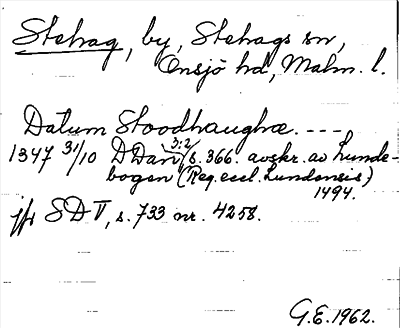 Stehag, by, Stehags sn,
Onsjö hd, Malm. l.
Datum Stoodhaughæ. ---
1347 31/10 D Dan 3:2 s. 366. avskr. av Lunde-
bogen (Reg. eccl. Lundensis)
1494.
jfr SD V, s. 733 nr. 4258.
G.E. 1962.